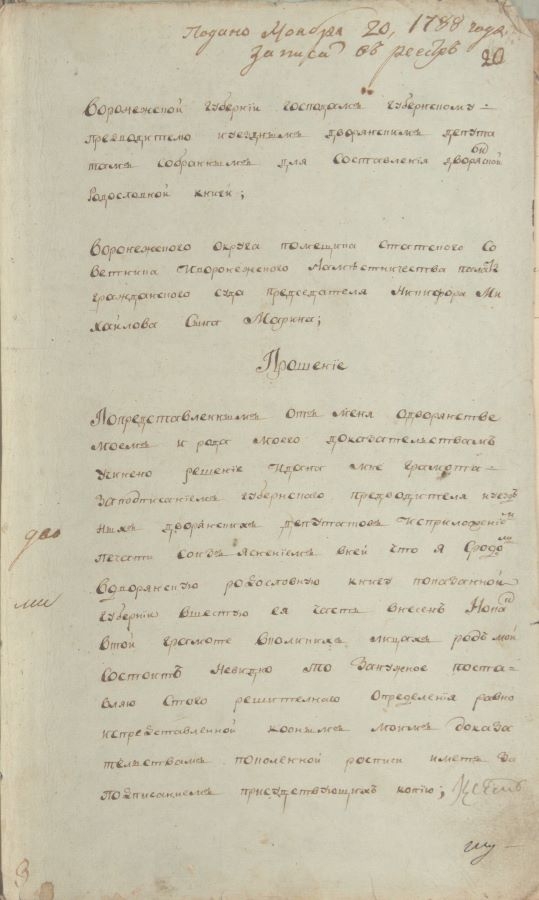 Подано Ноября 20, 1788 года
записа въ реестръ
20
Воронежской губерніи господамъ губернскому
преводителю иуезднымъ дворянскимъ депута
тамъ собраннымъ для составленія дворянской
родословной книги;
Воронежскаго округа помещика статскаго со
ветника Ив воронежскаго намѣстничества палаты
гражданскаго суда председателя Никифора Ми
хайлова сына Марина;
Прошеніе
Попредставленнымъ отъ меня одворянстве
моемъ и рода моего доказательствамъ
учинено решеніе Идана мне грамота
Заподписаніемъ губернскаго предводителя иуезд
ныхъ дворянскихъ депутатовъ исприложеніемъ
печати собъясненіемъ вней что я Сродомъ
Вдворянскую родословную книгу показанной
губерніи вшестую ея часть внесенъ Нокакъ
втой грамоте вколикихъ лицахъ родъ мой
состоитъ Невидно то Занужное поста
вляю Стого решителнаго Определенія равно
испредставленной коонымъ моимъ доказа
телствамъ поколенной росписи иметь за
подписаніемъ присудствующихъ копію;